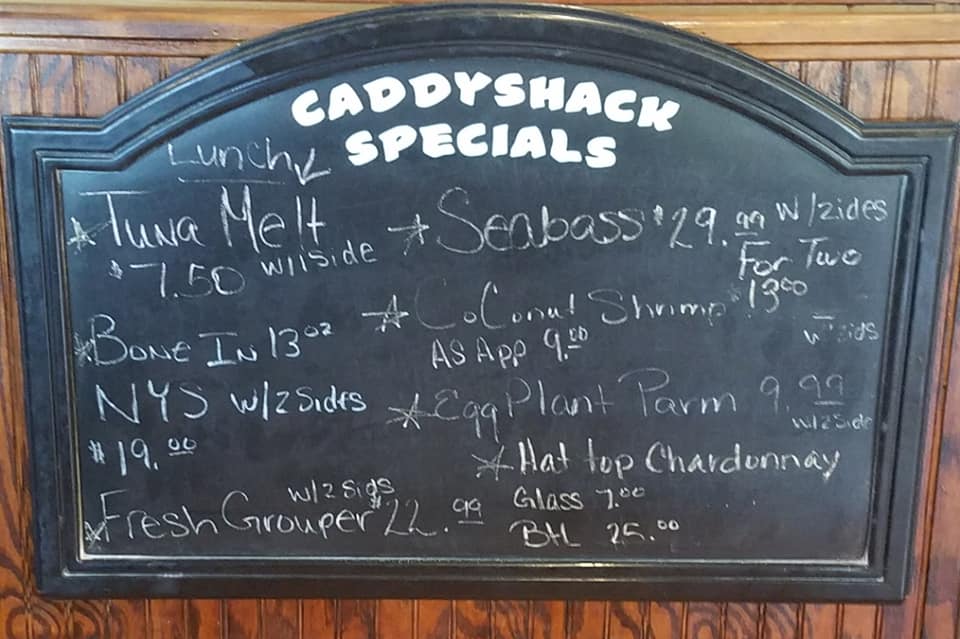 CADDYSHACK
SPECIALS
Lunch
Tuna Melt
$7.50 w/1 side
Bone In 13oz
NYS w/2 Sides
$19.00
w/2 Sids
Fresh Grouper $22.99
Seabass $29.99 w/2ides
For Two
CoConut Shrimp $13.00
w sids
AS App 9.00
EggPlant Parm 9.99
w/2 Side
Hat top Chardonnay
Glass 7.00
Btl 25.00